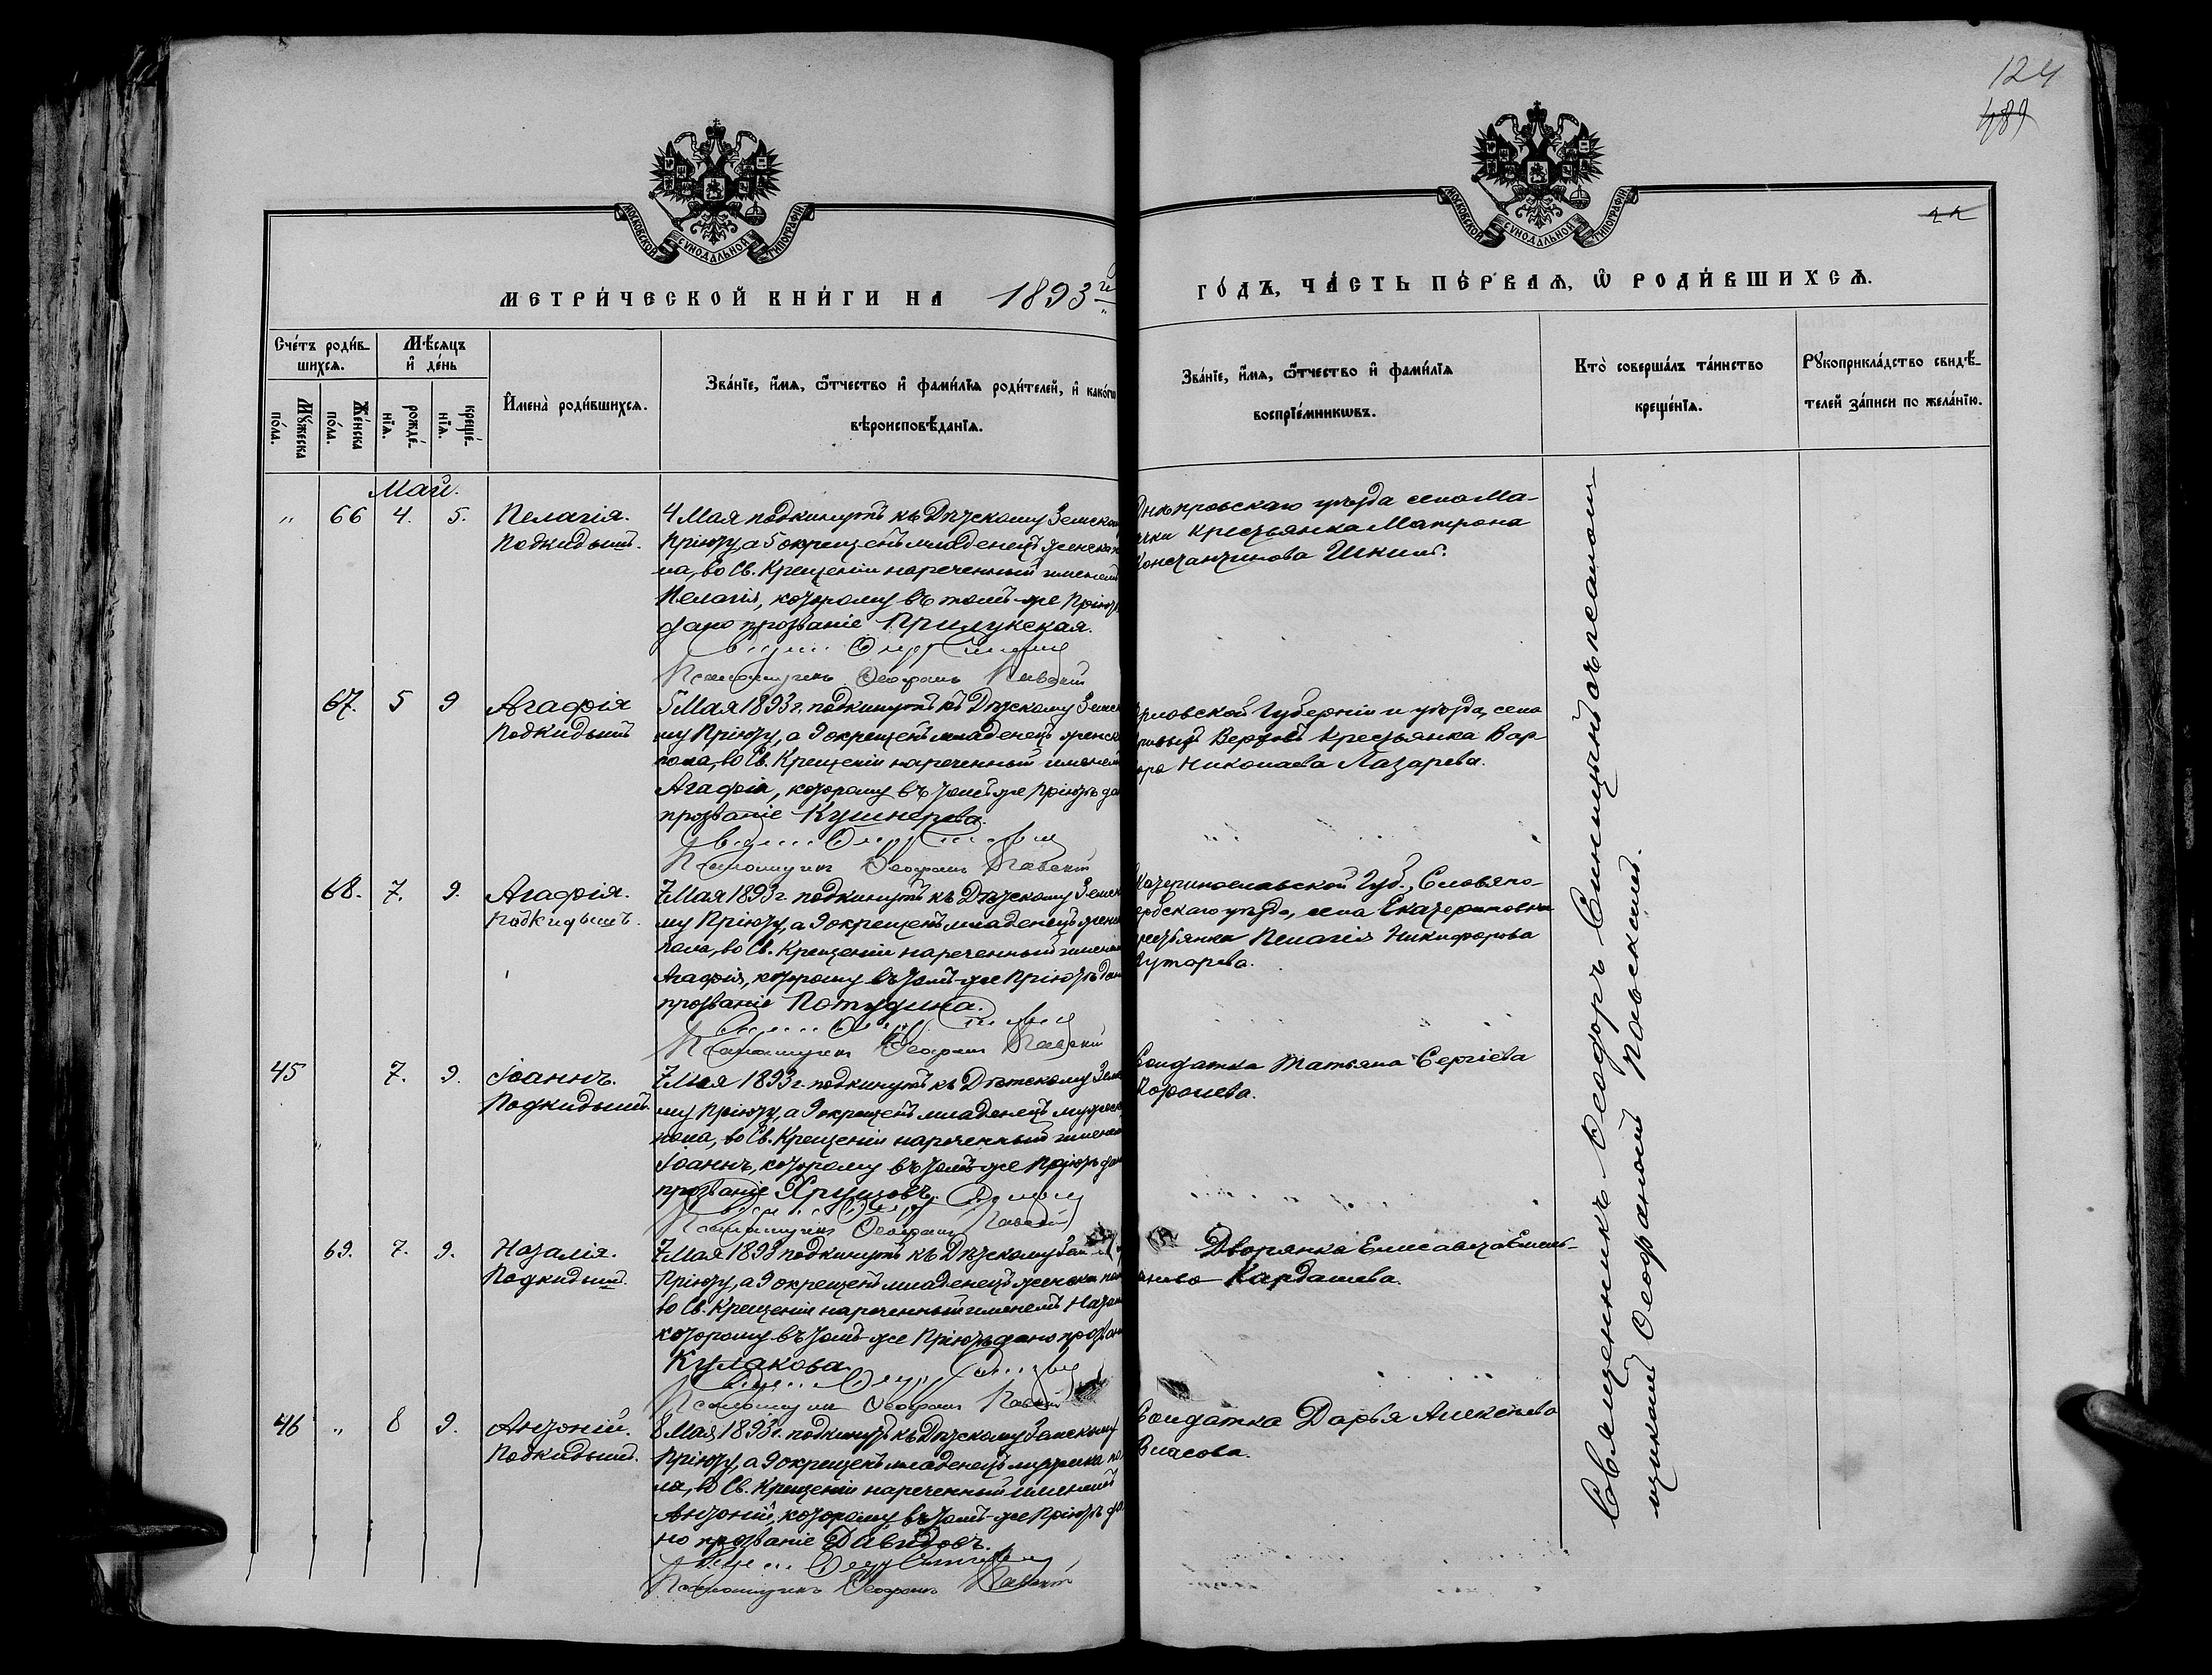 124
489
МОСКОВСКОЙ СѴНОДАЛЬНОЙ ТИПОГРАФІИ
МОСКОВСКОЙ СѴНОДАЛЬНОЙ ТИПОГРАФІИ
МЕТРИ́ЧЕСКОЙ КНИ́ГИ НА 1893 й
ГО́ДЪ, ЧА́СТЬ ПЕ́РВАѦ, Ѽ РОДИ́ВШИХСѦ.
Сче́тъ роди́в-
шихсѧ.
Мꙋ́жеска
по́ла.
Же́нска
по́ла.
Мѣ́сѧцъ
и҆ де́нь
рожде́-
нїѧ.
креще́-
нїѧ.
И҆мена̀ роди́вшихсѧ.
Зва́нїе, и҆́мѧ, ѻ҆́тчество и҆ фами́лїѧ роди́телей, и҆ како́гѡ
вѣроисповѣ́данїѧ.
Зва́нїе, и҆́мѧ, ѻ҆́тчество и҆ фами́лїѧ
воспрїе́мникѡвъ.
Кто̀ соверша́лъ та́инство
креще́нїѧ.
Рꙋкоприкла́дство свидѣ́-
телей за́писи по жела́нїю.
Май.
„ 66 4. 5. Пелагія.
Подкидышъ.
4 Мая подкинутъ къ Дѣтскому Земском
Пріюту, а 5 окрещенъ младенецъ женска по
ла, во Св. Крещеніи нареченный именемъ
Пелагія, которому въ томъ-же Пріютѣ
дано прозваніе Прилукская.
Псаломщикъ Ѳеофанъ Павскій
Днѣпровскаго уѣзда села Ма-
ячки Крестьянка Матрона
Константинова Шкиль.
67. 5 9 Агафія
Подкидышъ
5 Мая 1893 г. подкинутъ къ Дѣтскому Земск
му Пріюту, а 9 окрещенъ младенецъ женска
пола, во Св. Крещеніи нареченный именемъ
Агафія, которому въ томъ же Пріютѣ да
прозваніе Кушнерева.
Псаломщикъ Ѳеофанъ Павскій
рловской Губерніи и уѣзда, села
Верховъ Крестьянка Вар-
ара Николаева Лазарева.
68. 7. 9. Агафія.
Подкидышъ.
7 Мая 1893 г. подкинутъ къ Дѣтскому Земск
му Пріюту, а 9 окрещенъ младенецъ женск
пола, во Св. Крещеніи нареченный именем
Агафія, которому въ томъ-же Пріютѣ дан
прозваніе Потудина.
Псаломщикъ Ѳеофанъ Павскій
катеринославской Губ., Славяно-
ербскаго уѣзда, села Екатериновки
рестьянка Пелагія Никифорова
утарева.
45 7. 9. Іоаннъ.
Подкидышъ.
7 Мая 1893 г. подкинутъ къ Дѣтскому Земск
му Пріюту, а 9 окрещенъ младенецъ мужеск
пола, во Св. Крещеніи нареченный именем
Іоаннъ, которому въ томъ-же Пріютѣ дан
прозваніе Хрущовъ.
Псаломщикъ Ѳеофанъ Павскій
Солдатка Татьяна Сергіева
Королева.
69. 7. 9. Наталія.
Подкидышъ.
7 Мая 1893 подкинутъ къ Дѣтскому Зем
Пріюту, а 9 окрещенъ младенецъ женска пол
во Св. Крещеніи нареченный именемъ Натал
которому въ томъ-же Пріютѣ дано прозван
Кулакова.
Псаломщикъ Ѳеофанъ Павскій
Дворянка Елисавета Емель-
янова Кардашева.
46 „ 8 9. Антоній.
Подкидышъ.
8 Мая 1893 г. подкинутъ къ Дѣтскому Земскому
Пріюту, а 9 окрещенъ младенецъ мужеска по
ла, во Св. Крещеніи нареченный именемъ
Антоній, которому въ томъ-же Пріютѣ да
но прозваніе Давидовъ.
Псаломщикъ Ѳеофанъ Павскій
Солдатка Дарья Алексѣева
Власова.
Священникъ Ѳеодоръ Синицынъ съ псалом
щикомъ Ѳеофаномъ Павскимъ.